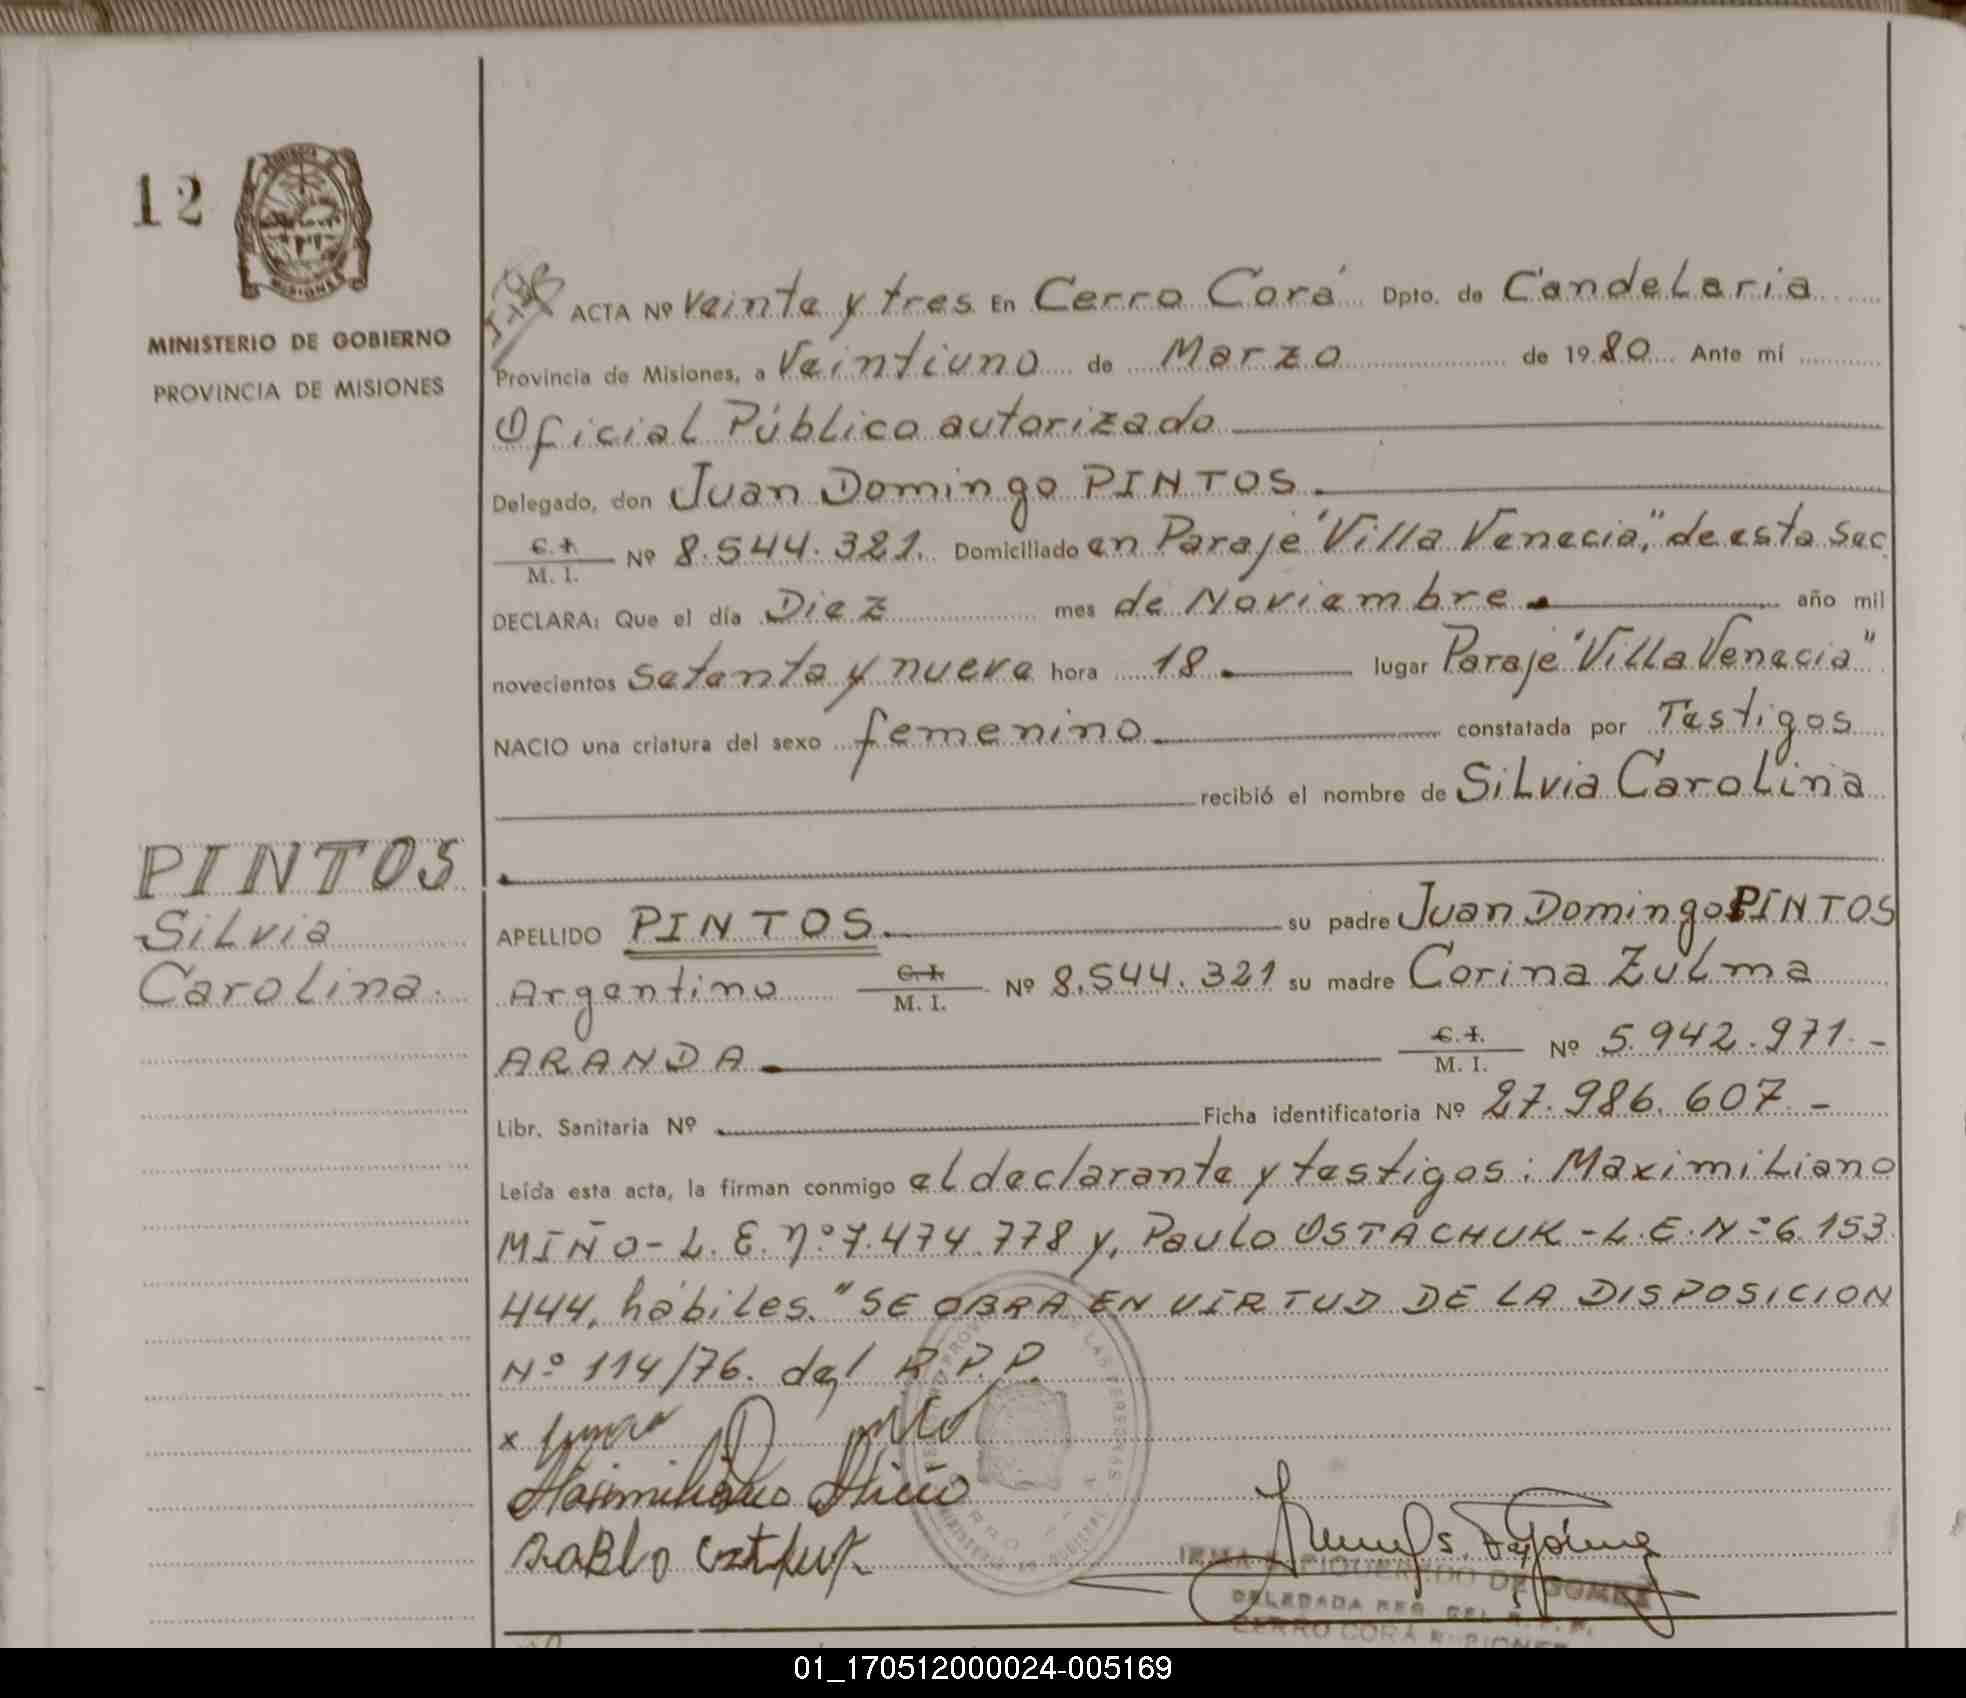 12
MISIONES
MINISTERIO DE GOBIERNO
PROVINCIA DE MISIONES
PINTOS
Silvia
Carolina.
ACTA Nº Veinte y tres En Cerro Corá Dpto. de Candelaria
Provincia de Misiones, a Veintiuno de Marzo de 1980 Ante mí
Oficial Público autorizado
Delegado, don Juan Domingo PINTOS
C. I. / M. I. Nº 8.544.321. Domiciliado en Paraje "Villa Venecia", de esta Sec
DECLARA: Que el día Diez mes de Noviembre año mil
novecientos setenta y nueve hora 18 lugar Paraje "Villa Venecia"
NACIO una criatura del sexo femenino constatada por Testigos
recibió el nombre de Silvia Carolina
APELLIDO PINTOS su padre Juan Domingo PINTOS
Argentino C. I. / M. I. Nº 8.544.321 su madre Corina Zulma
ARANDA C. I. / M. I. Nº 5.942.971.-
Libr. Sanitaria Nº Ficha identificatoria Nº 27.986.607.-
Leída esta acta, la firman conmigo el declarante y testigos: Maximiliano
MIÑO- L.E. nº 7.474.778 y, Paulo OSTACHUK - L.E. Nº 6.153
444, hábiles. "SE OBRA EN VIRTUD DE LA DISPOSICION
Nº 114/76. del R.P.P.
x
Maximiliano Miño
Pablo
IRMA S. FIGUEREDO DE GOMEZ
DELEGADA REG. DEL R. P. P.
CERRO CORA MISIONES
01_170512000024-005169